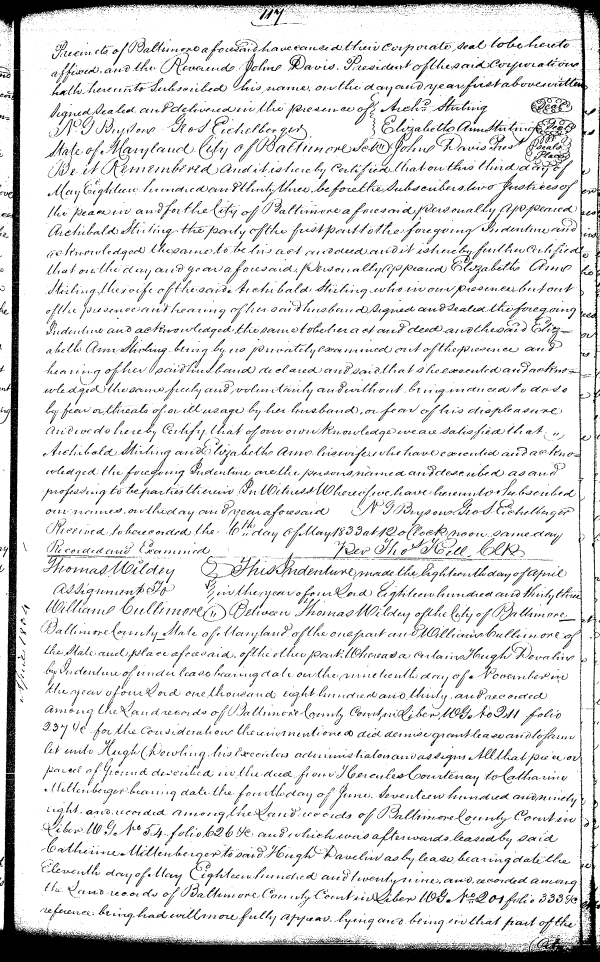 117
Precincts of Baltimore aforesaid have caused their corporate seal to be hereto
affixed and the Reverend John Davis President of the said Corporation
hath hereunto Subscribed his name on the day and year first above written
Signed Sealed and delivered in the presence of } Archd Stirling (Seal)
N G Bryson Geo S Eichelberger } Elizabeth Ann Stirling (Seal)
State of Maryland City of Baltimore Sct John Davis Prest (Seals Place)
Be it Remembered And it is hereby Certified that on this third day of
May Eighteen hundred and thirty three before the Subscribers two Justices of
the peace in and for the City of Baltimore aforesaid personally appeared
Archibald Stirling the party of the first part to the foregoing Indenture and
acknowledged the same to be his act and deed and it is hereby further Certified
that on the day and year aforesaid personally appeared Elizabeth Ann
Stirling the wife of the said Archibald Stirling who in our presence but out
of the presence and hearing of her said husband signed and sealed the foregoing
Indenture and acknowledged the same to be her act and deed and the said Eliz-
abeth Ann Stirling being by us privately examined out of the presence and
hearing of her said husband declared and said that she executed and acknow-
ledged the same freely and voluntarily and without being induced to do so
by fear or threats of or ill usage by her husband, or fear of his displeasure
And we do hereby Certify that of our own knowledge we are satisfied that "
Archibald Stirling and Elizabeth Ann his wife who have executed and acknow-
ledged the foregoing Indenture are the persons named and described as and
professing to be parties therein In Witness Whereof we have hereunto Subscribed
our names on the day and year aforesaid N G Bryson Geo S Eichelberger
Received to be recorded the 6th day of May 1833 at 12 o Clock noon same day
Recorded and Examined per Thos Kell Clk
Thomas Wildey } This Indenture made the Eighteenth day of April
Assignment To } in the year of our Lord Eighteen hundred and thirty three
William Cullimore } Between Thomas Wildey of the City of Baltimore
Baltimore County State of Maryland of the one part and William Cullimore of
the State and place aforesaid of the other part. Whereas a certain Hugh Devalin
by Indenture of under lease bearing date on the nineteenth day of November in
the year of our Lord one thousand eight hundred and thirty and recorded
among the Land records of Baltimore County Court in Liber WG No 211 folio
237 &c for the Consideration therein mentioned did demise grant lease and to farm
let unto Hugh Dowling his executors administrators and assigns All that piece or
parcel of Ground described in the deed from Hercules Courtenay to Catharine
Miltenberger bearing date the fourth day of June Seventeen hundred and ninety
eight and recorded among the Land records of Baltimore County Court in
Liber WG No 54 folio 626 &c and which was afterwards leased by said
Catherine Miltenberger to said Hugh Devalin as by lease bearing date the
Eleventh day of May Eighteen hundred and twenty nine and recorded among
the Land records of Baltimore County Court in Liber WG No 201 folio 333 &c
reference being had will more fully appear lying and being in that part of the